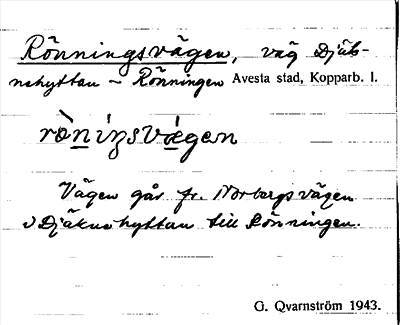 Rönningsvägen, väg Djäk-
nehyttan – Rönningen Avesta stad, Kopparb. l.
rònińsvǽgen
Vägen går fr. Norbergsvägen
i Djäknehyttan till Rönningen.
G. Qvarnström 1943.